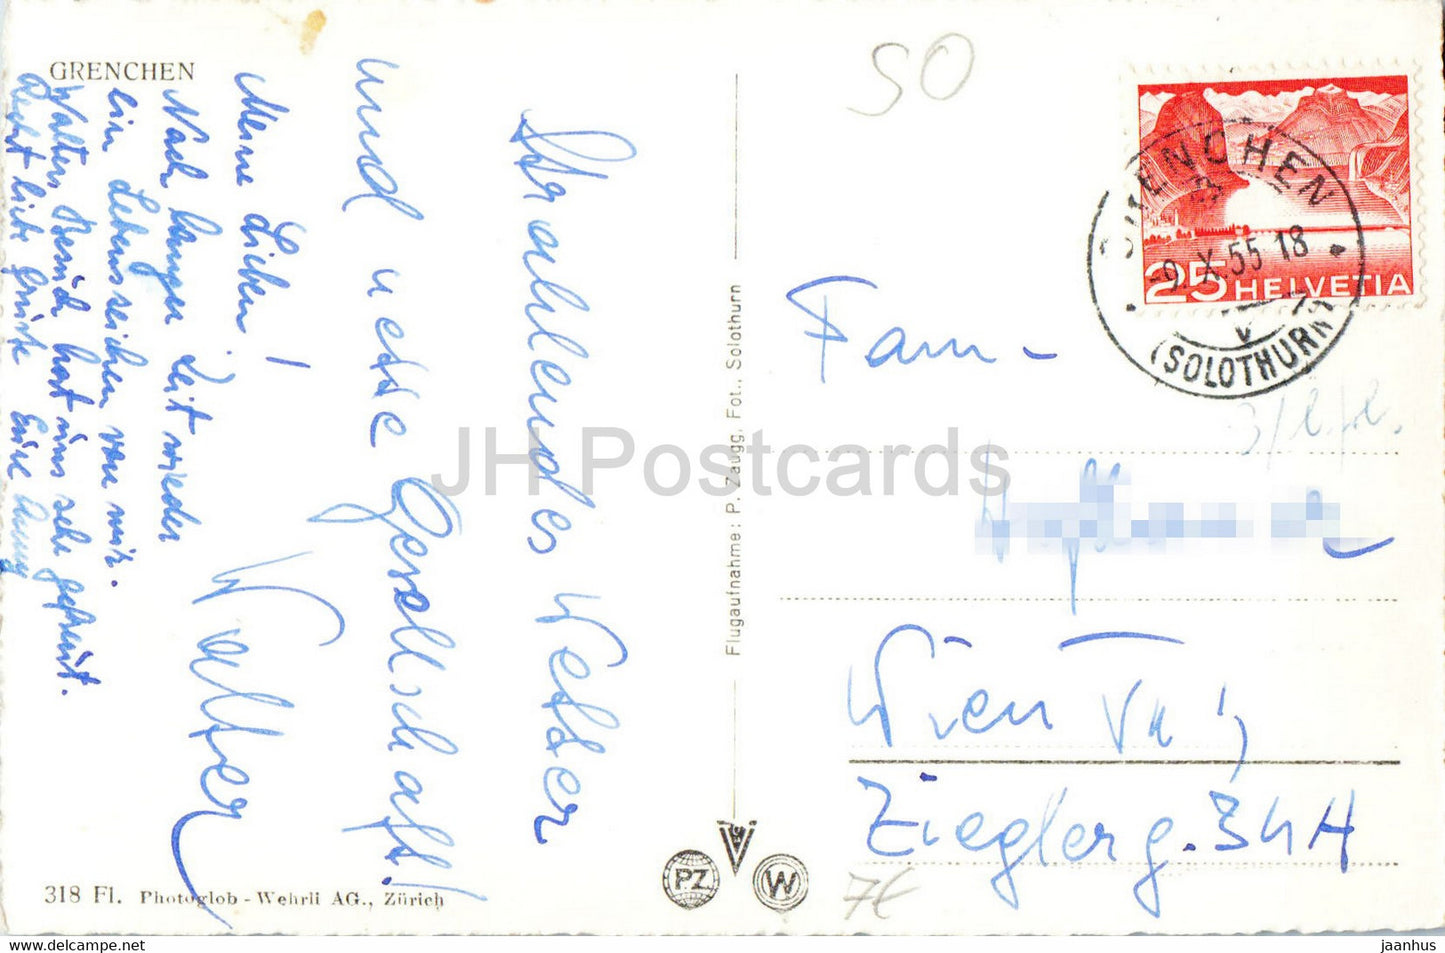 GRENCHEN
Strahlendes Wetter
und nette Gesellschaft!
Walter
Meine Lieben!
Nach langer Zeit wieder
ein Lebenszeichen von mir.
Walters Besuch hat uns sehr gefreut.
Recht liebe Grüsse Eure
318 Fl. Photoglob-Wehrli AG., Zürich
Flugaufnahme: P. Zaugg, Fot., Solothurn
PZ
W
SO
25 HELVETIA
GRENCHEN
-9.X.55 18
(SOLOTHURN)
Fam-
Wien VII
Zieglerg. 34A
7€
JH Postcards
jaanhus